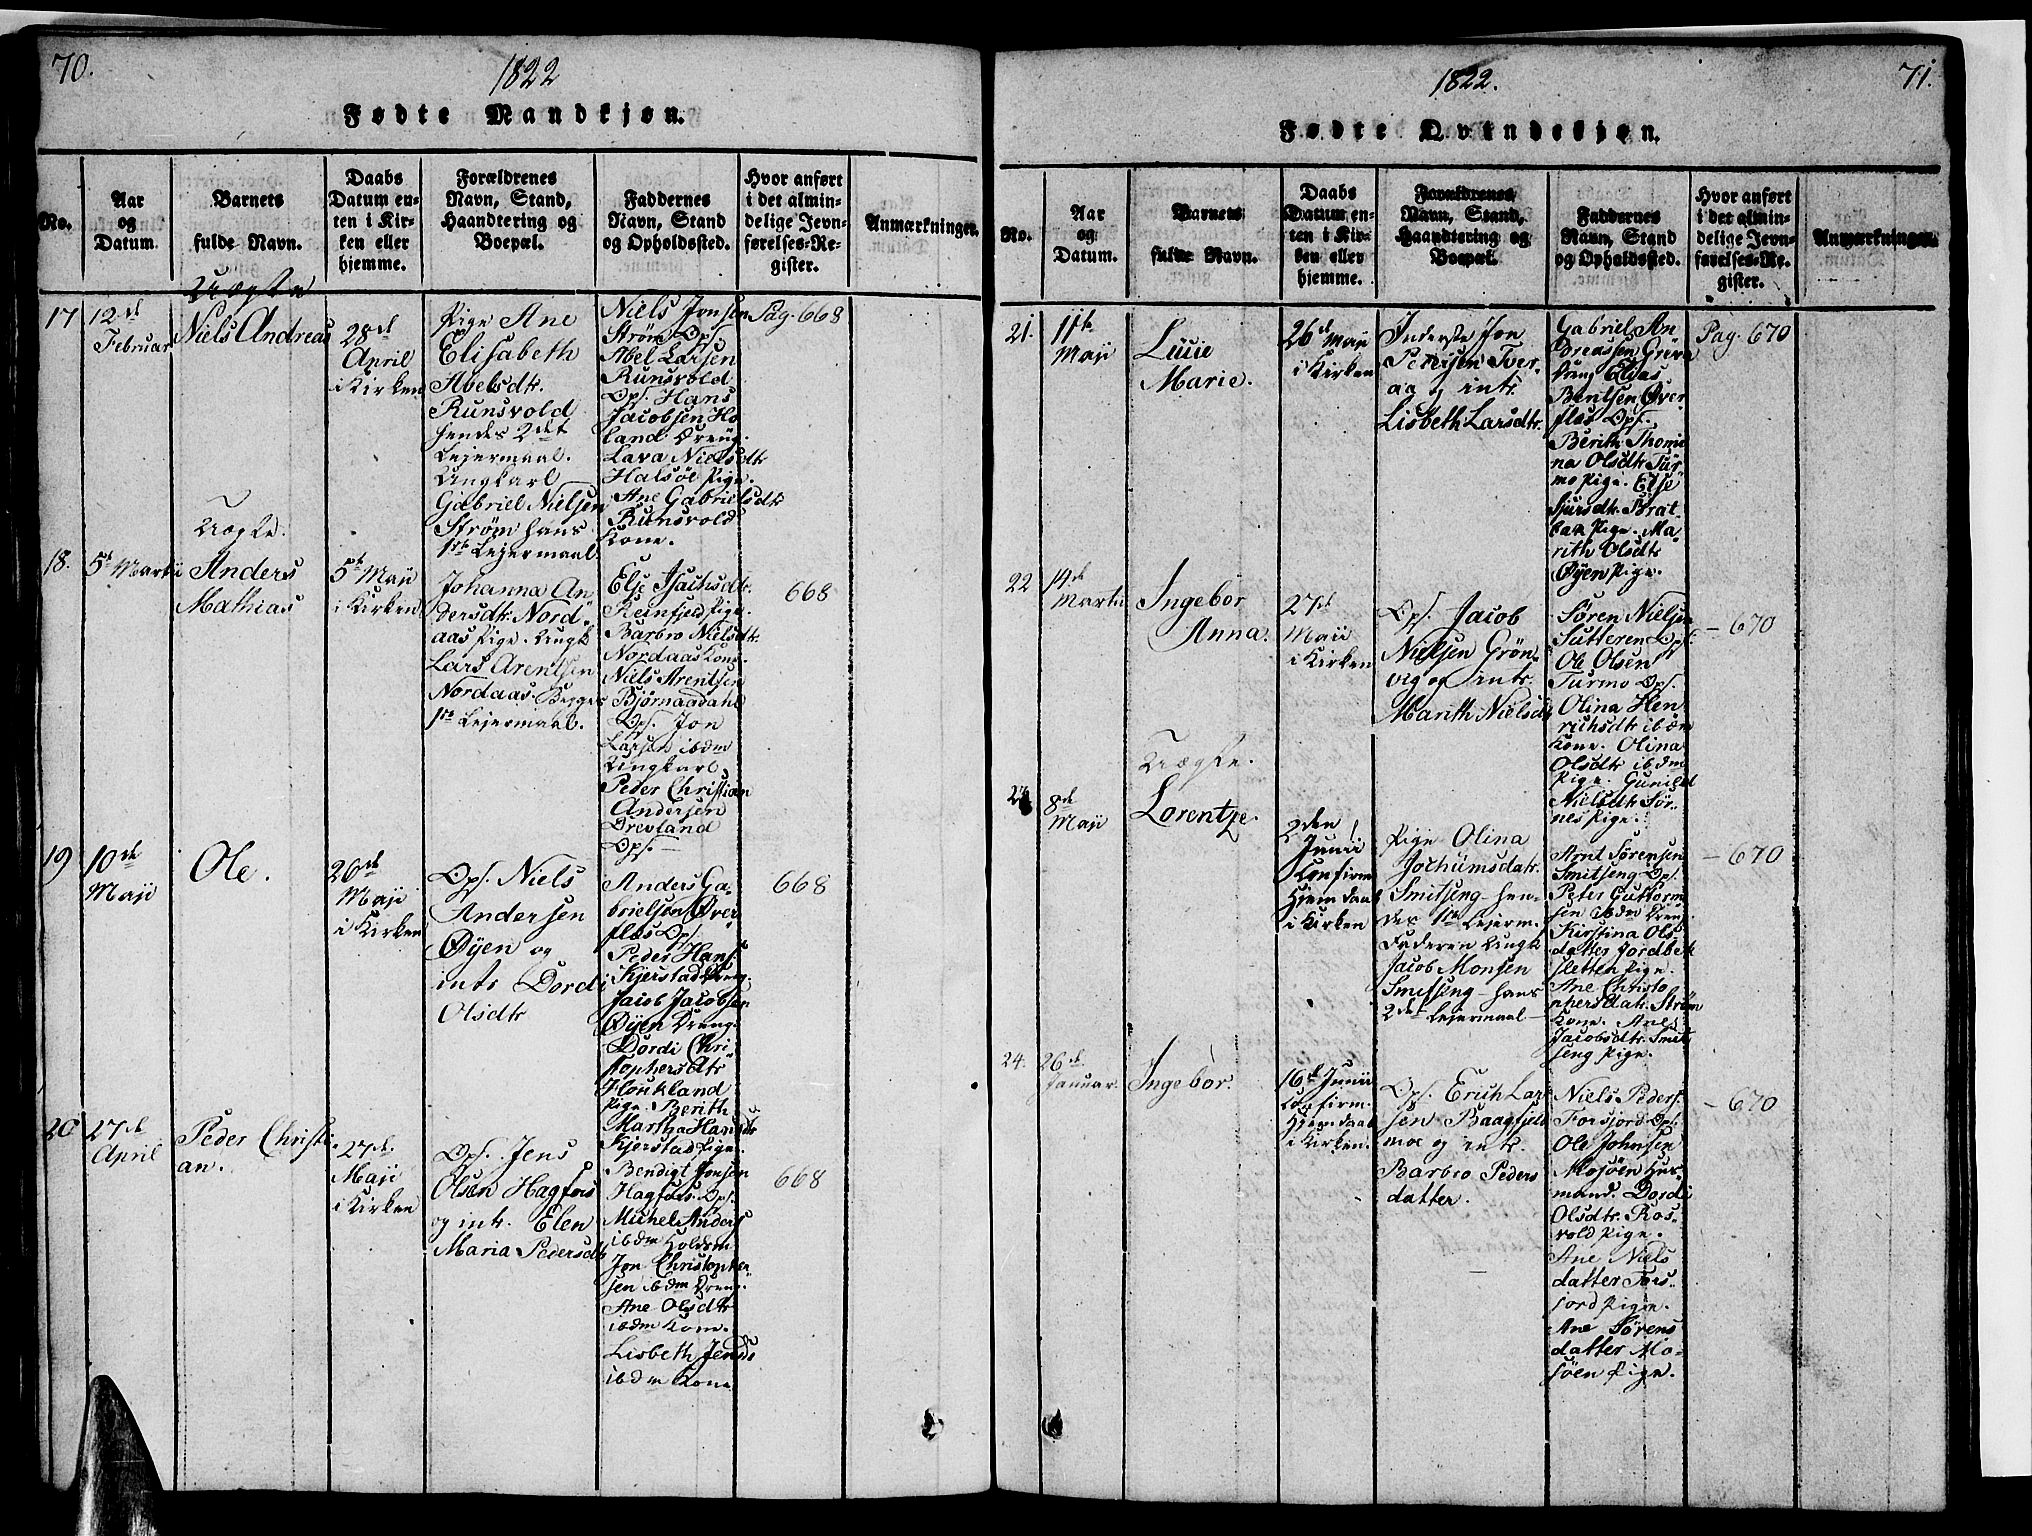 70.
1822
Fødte Mandkjøn.
No.
Aar
og
Datum.
Barnets
fulde Navn.
Daabs
Datum en-
ten i Kir-
ken eller
hjemme.
Forældrenes
Navn, Stand,
Haandtering og
Boepæl.
Faddernes
Navn, Stand
og Opholdssted.
Hvor anført
i det almin-
delige Jevn-
førelses-Re-
gister.
Anmærkninger.
17
12te
Februar
Uægte
Niels Andreas
28de
April
i Kirken
Pige Ane
Elisabeth
Abelsdtr.
Runsvold
hendes 2det
Lejermaal.
Ungkarl
Gabriel Nielsen
Strøm hans
1ste Lejermaal
Niels Jonsen
Strøm Ops.
Abel Larsen
Runsvold
Ops. Hans
Jacobsen Ho
land Dreng.
Lava Nielsdtr
Halsøe Pige.
Ane Gabrielsdtr
Runsvold
Kone.
Pag. 668
18.
5te Martii
Uægte.
Anders
Mathias
5te Maji
i Kirken
Johanna An
dersdtr. Nord
aas Pige. Ungk
Lars Arentsen
Nordaas. Begges
1ste Lejermaal.
Else Isachsdtr.
Reinfjeld Pige.
Barbro Nielsdtr.
Nordaas Kone.
Niels Arentsen
Bjørnaadahl
Ops. Jon
Larsen ibdm
Ungkarl
Peder Christian
Andersen
Drevland
Ops.
668
19
10de
Maji
Ole.
26de
Maji
i Kirken
Ops. Niels
Andersen
Øyen og
intr Dordi
Olsdtr
Anders Ga
brielsen Øver
flæs Ops.
Peder Hans.
Kjerstad Dreng
Jacob Jacobsen
Øyen Dreng.
Dordi Chri
stophersdtr
Houkland
Pige. Berith
Martha Hansdtr
Kjerstad Pige.
668
20
27de
April
Peder Christi
an.
27de
Maji
i Kirken
Ops. Jens
Olsen Hagfors
og intr. Elen
Maria Pedersdtr
Bendigt Jonsen
Hagfors. Ops.
Michel Anders
ibdm Holdsm
Jon Christophe
sen ibdm Dreng.
Ane Olsdtr
ibdm Kone.
Lisbeth Jensdtr
ibdm Kone
668
71.
1822.
Fødte Qvindekjøn.
No.
Aar
og
Datum.
Barnets
fulde Navn.
Daabs
Datum en-
ten i Kir-
ken eller
hjemme.
Forældrenes
Navn, Stand,
Haandtering og
Boepæl.
Faddernes
Navn, Stand
og Opholdssted.
Hvor anført
i det almin-
delige Jevn-
førelses-Re-
gister.
Anmærkninger.
21.
11te
Maji
Marie.
26de Maji
i Kirken
Inderste Jon
Petersen Tver
aa og intr.
Lisbeth Larsdtr.
Gabriel An
dreassen
Dreng Elias
Bentsen Øver
flæs Ops.
Berith Thomi
na Olsdtr Tur
mo Pige. Else
Sjursdtr. Brat
bak Pige. Ma
rith Olsdtr
Øyen Pige.
Pag. 670
22
14de
Martii
Ingebor
Anna.
27de
Maji
i Kirken
Ops. Jacob
Nielsen Grøn
vig og intr.
Marith Nielsdtr
Søren Nielsen
Sutteren Ops.
Ole Olsen
Turmo Ops.
Olina Hen
richsdtr ibdm
Kone. Olina
Olsdtr ibdm
Pige. Gunild
Nielsdtr Sør
nes Pige.
- 670
23
8de
Maji
Uægte.
Lorentze.
2den
Junii
Confirm.
Hjemdaab
i Kirken
Pige Olina
Jochumsdatr.
Smitseng hen-
des 1ste Lejerm.
Faderen Ungk
Jacob Monsen
Smitseng - hans
2det Lejermaal
Arnt Sørensen
Smitseng Ops.
Peter Guttorm
sen ibdm Dreng
Kirstina Ols
datter Jordbek
sletten Pige.
Ane Christo
phersdatr. Strøm
Kone. Ane
Jacobsdtr. Smit
seng Pige.
- 670
24.
26de
Januar.
Ingebor.
16de Junii
Confirm.
Hjemdaab
i Kirken.
Ops. Erich Lar
sen Baagfjeld
moe og intr.
Barbro Peders
datter.
Niels Peders.
Forsjord Ops.
Ole Johnsen
Mosjöen Huus
mand. Dordi
Olsdtr. Ros
vold Pige.
Ane Niels
datter Fors
jord Pige.
Ane Sørens
datter Mo-
sjöen Pige.
- 670